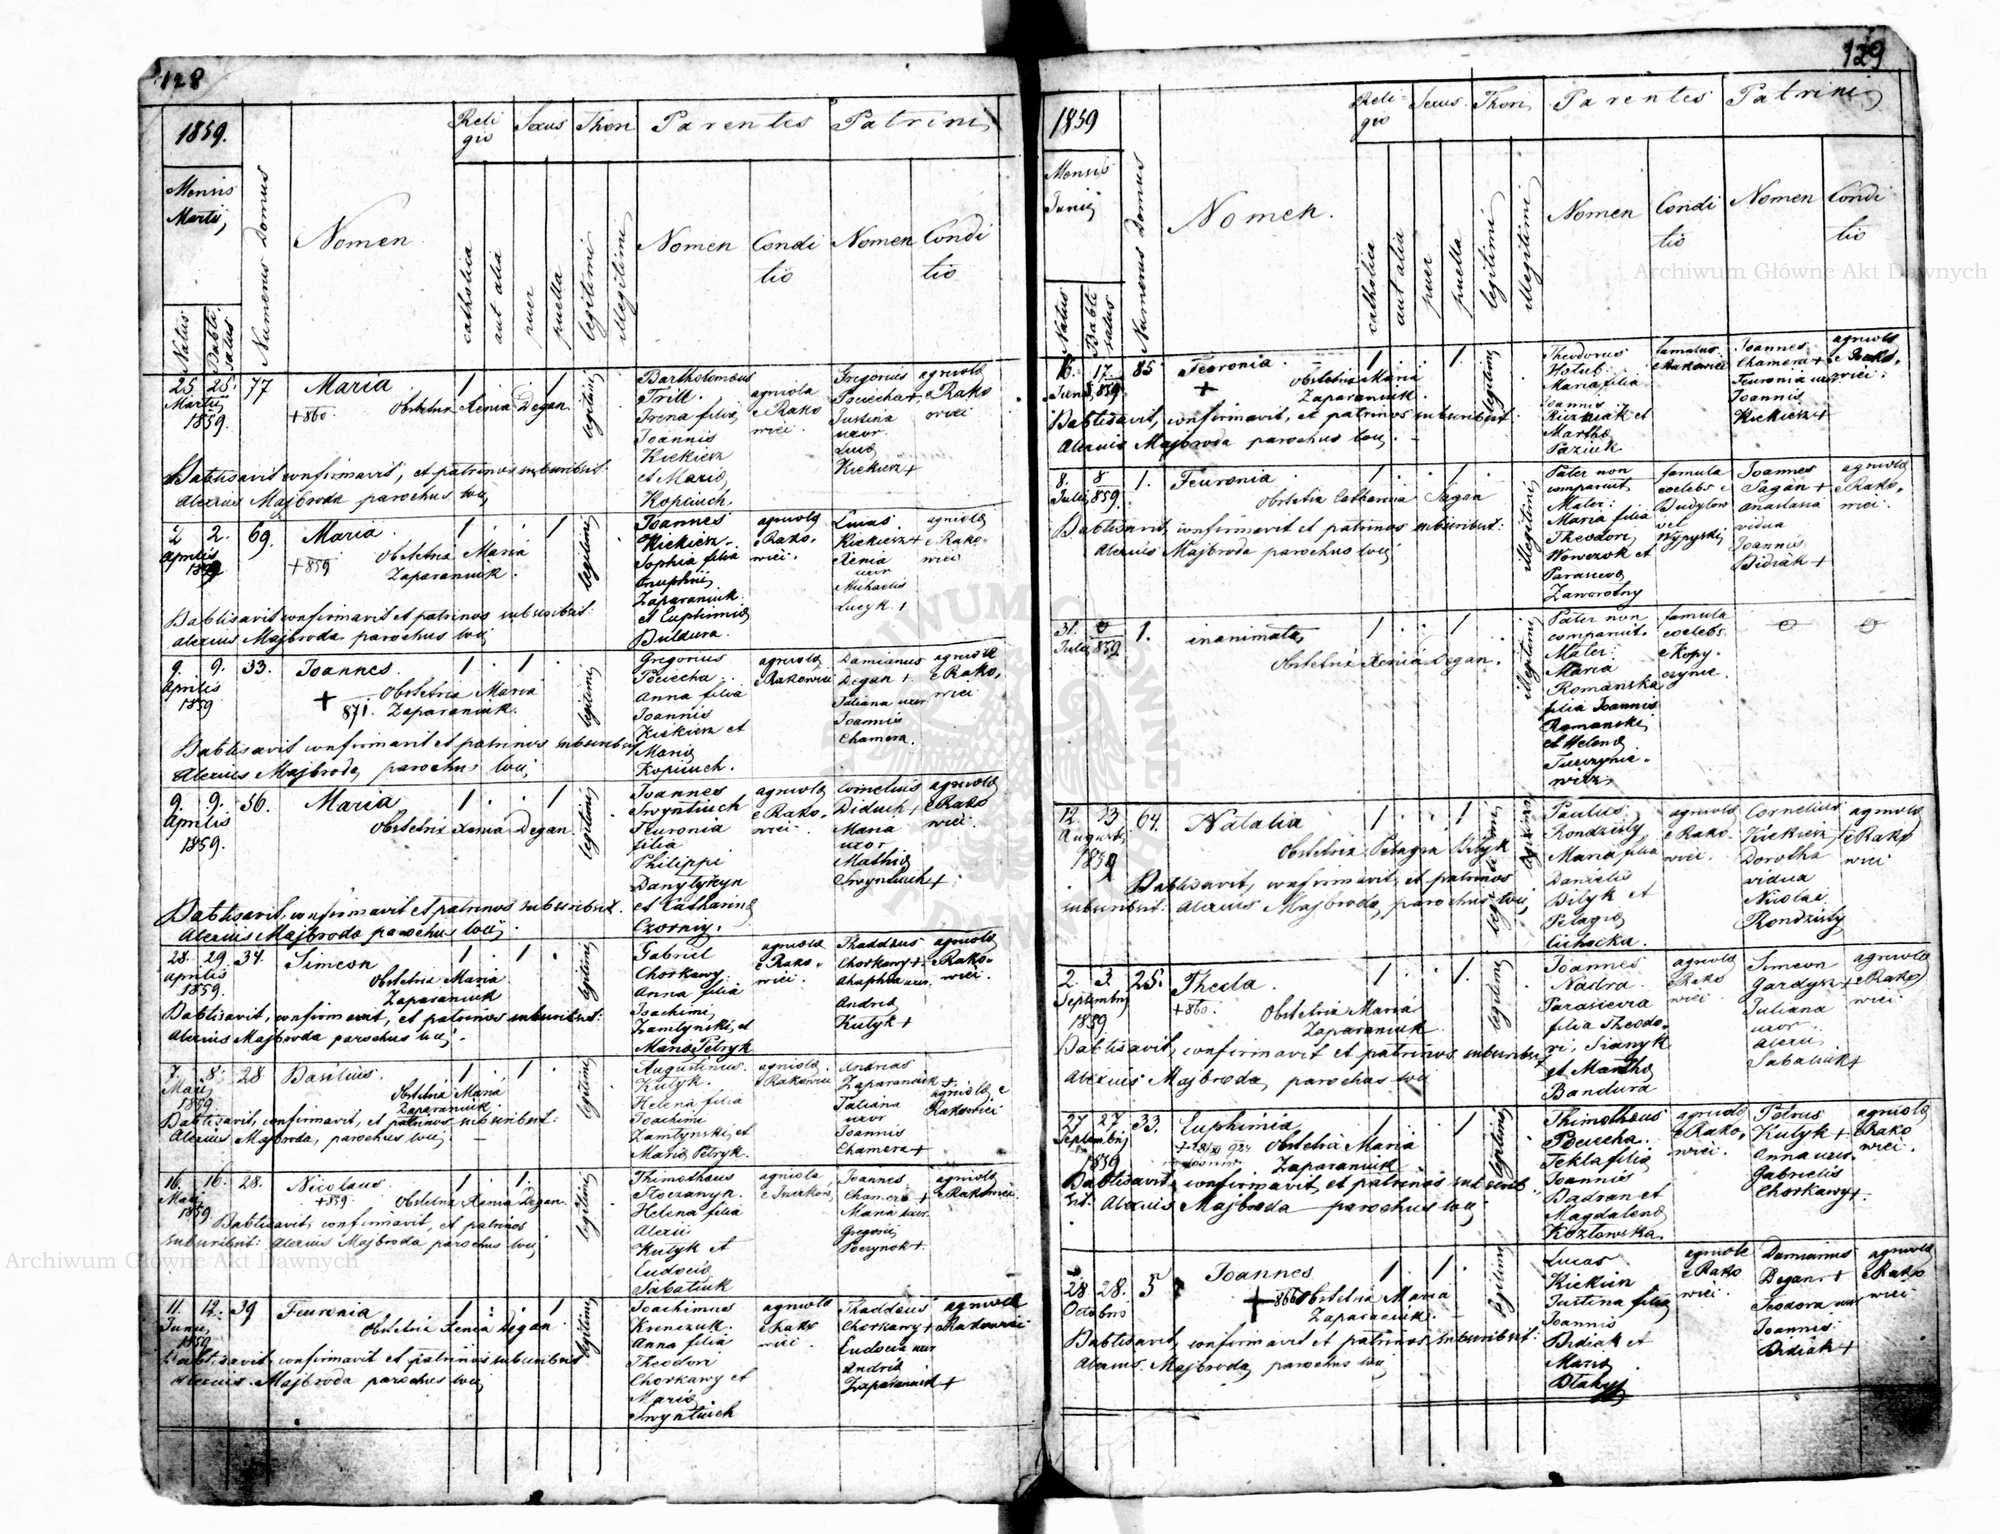 128
1859.
Mensis
Martij
Natus
Babti
satus
Numerus Domus
Nomen
Reli
gio
catholica
aut alia
Sexus
puer
puella
Thori
legitimi
illegitimi
Parentes
Nomen
Condi
tio
Patrini
Nomen
Condi
tio
25 25. 77 Maria 1 . . 1
Martij
1859.
+860. Obstetrix Xenia Degan
legitimi
Bartholomeus
Trill.
Irena filia
Joannis
Kiekiesz
et Maria
Kopciuch.
agricola
e Rako
wiec.
Gregorius
Pociecha +
Justina
uxor
Luca
Kiekiesz +
agricola
e Rako
wiec
Babtisavit confirmavit, et patrinos subscribit:
Alexius Majbroda parochus loci
2 2. 69. Maria. 1 . . 1
Aprilis
1859
+859 Obstetrix Maria
Zaparaniuk.
legitimi
Joannes
Kiekiesz.
Sophia filia
Onuphrii
Zaparaniuk.
et Euphimia
Buldura.
agricola
e Rako.
wiec.
Lucas.
Kiekiesz +
Xenia
uxor
Michaelis
Lucyk. +
agricola
e Rako.
wiec
Babtisavit confirmavit et patrinos subscribit:
Alexius Majbroda parochus loci
9. 9. 33. Joannes. 1 . 1
Aprilis
1859
+ 871. Obstetrix Maria
Zaparaniuk.
legitimi
Gregorius
Pociecha.
Anna filia
Joannis
Kiekiesz et
Maria
Kopciuch.
agricola
e Rakowiec
Damianus
Degan +
Juliana uxor
Joannis
Chamera.
agricola
e Rako.
wiec
Babtisavit confirmavit et patrinos subscribit
Alexius Majbroda, parochus loci
9. 9. 56. Maria 1 . . 1
Aprilis
1859.
Obstetrix Xenia Degan.
legitimi
Joannes
Swyntiuch
Feuronia
filia
Philippi
Danylykyn
et Catharina
Czorniy.
agricola
e Rako.
wiec.
Cornelius
Diduch +
Maria
uxor
Mathia
Swyntiuch +
agricola
e Rako
wiec.
Babtisavit, confirmavit et patrinos subscribit.
Alexius Majbroda parochus loci
28. 29. 34. Simeon 1 . 1 .
Aprilis
1859.
Obstetrix Maria
Zaparaniuk
legitimi
Gabriel
Chorkawy.
Anna filia
Joachimi
Zamlynski et
Maria Petryk
agricola
e Rako.
wiec.
Thaddeus
Chorkawy +
Ahaphia uxor.
Andrea
Kutyk +
agricola
e Rako.
wiec.
Babtisavit, confirmavit, et patrinos subscribit:
Alexius Majbroda parochus loci.
7. 8. 28 Basilius. 1 . 1 .
Maij
1859
Obstetrix Maria
Zaparaniuk.
legitimi
Augustinus.
Kutyk.
Helena filia
Joachimi
Zamlynski et
Maria Petryk.
agricola
e Rakowiec
Andreas
Zaparaniuk +
Tatiana
uxor
Joannis
Chamera +
agricola e
Rakowiec
Babtisavit, confirmavit, et patrinos subscribit:
Alexius Majbroda, parochus loci
16. 16. 28. Nicolaus. 1 . 1.
Maij
1859
+859. Obstetrix Xenia Degan.
legitimi
Thimotheus
Stoczanyk.
Helena filia
Alexii
Kutyk et
Eudocia
Sabatiuk
agricola
Joannes
Chamera +
Maria uxor.
Gregorii
Poczynok +.
agricola
e Rakowiec
Babtisavit, confirmavit, et patrinos
subscribit: Alexius Majbroda parochus loci
11. 12. 39 Feuronia 1 . . 1
Junij
1859.
Obstetrix Xenia Degan
legitimi
Joachimus
Krenczuk.
Anna filia
Theodori
Chorkawy et
Maria
Swyntiuch
agricola
e Rako
wiec.
Thaddeus
Chorkawy +
Eudocia uxor
Andrea
Zaparaniuk +
agricola
e Rakowiec
Babtisavit confirmavit et patrinos subscribit
Alexius Majbroda parochus loci
129
1859
Mensis
Junij
Natus
Babti
satus
Numerus Domus
Nomen.
Reli
gio
catholica
aut alia
Sexus.
puer
puella
Thori
legitimi
illegitimi
Parentes
Nomen
Condi
tio
Patrini
Nomen
Condi
tio
16. 17. 85. Feuronia. 1 . . 1.
Junij 859.
+ Obstetrix Maria
Zaparaniuk.
legitimi
Theodorus
Holub.
Maria filia
Joannis
et
Martha
Paziuk.
famulus.
e Rakowiec
Joannes
Chamera +
Feuronia uxor
Joannis
Kiekiesz +
agricola
e Rako.
wiec.
Babtisavit, confirmavit, et patrinos subscribit:
Alexius Majbroda parochus loci.
8. 8 1. Feuronia 1 . . 1 .
Julij 859.
Obstetrix Catharina Sagan
illegitimi
Pater non
comparuit
Mater:
Maria filia
Theodori
et
Parascevia
Zaworotny
famula
coelebs e
Budylow
vel
Wypyski
Joannes
Sagan +
Anastasia
vidua
Joannis
Bidiak +
agricola
e Rako.
wiec.
Babtisavit, confirmavit et patrinos subscribit:
Alexius Majbroda parochus loci
31. 0 1. inanimata, 1 . . 1
Julij 859
Obstetrix Xenia Degan.
illegitimi
Pater non
comparuit.
Mater:
Maria
Romanska
filia Joannis
Romanski
et Helena
famula
coelebs.
e Kopy.
czynic.
0 0
12. 13 64. Natalia 1 . . 1
Augusti
1859
Obstetrix Pelagia Bilyk
legitimi
Paulus
Rondzisty
Maria filia
Danielis
Bilyk et
Pelagia
Cichocka.
agricola
e Rako.
wiec.
Cornelius
Kiekiesz +
Dorotha
vidua
Nicolai.
Rondzisty
agricola
e Rako
wiec
Babtisavit, confirmavit, et patrinos
subscribit: Alexius Majbroda, parochus loci
2. 3. 25. Thecla. 1 . . 1.
Septembris
1859
+860. Obstetrix Maria
Zaparaniuk
legitimi
Joannes
Nadra.
Parascevia
filia Theodo-
ri. Sianyk
et Martha
Bandura
agricola
e Rako
wiec.
Simeon
Gardysz +
Juliana
uxor.
Alexii
Sabatiuk +
agricola
e Rako
wiec.
Babtisavit, confirmavit et patrinos subscribit
Alexius Majbroda, parochus loci
27 27. 33. Euphimia 1 . . 1
Septembris
1859
Obstetrix Maria
Zaparaniuk
legitimi
Thimotheus
Pociecha.
Tekla filia
Joannis
Badran et
Magdalena
Kozlowska
agricola
e Rako.
wiec.
Petrus
Kutyk +
Anna uxor.
Gabrielis
Chorkawy +.
agricola
e Rako
wiec.
Babtisavit, confirmavit, et patrinos subscri
bit: Alexius Majbroda parochus loci
28 28. 5 Joannes 1 . 1.
Octobris
+ 866 Obstetrix Maria
Zaparaniuk.
legitimi
Lucas
Kiekisz
Justina filia
Joannis
Bidiak et
Maria
agricola
e Rako
wiec.
Damianus
Degan +
Teodora uxor
Joannis.
Bidiak +
agricola
e Rako
wiec
Babtisavit, confirmavit et patrinos subscribit:
Alexius. Majbroda, parochus loci
Archiwum Główne Akt Dawnych
Archiwum Główne Akt Dawnych